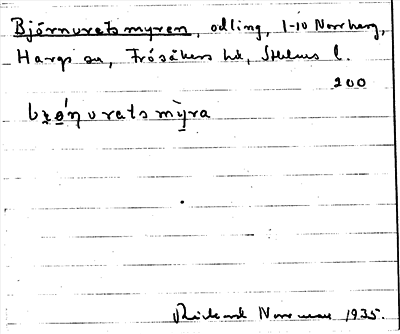 Björnuretsmyren, odling, 1-10 Norrberg,
Hargs sn, Frösåkers hd, Sthlms l.
200
bzǿnuratsmỳra
Rickard Norrman 1935.